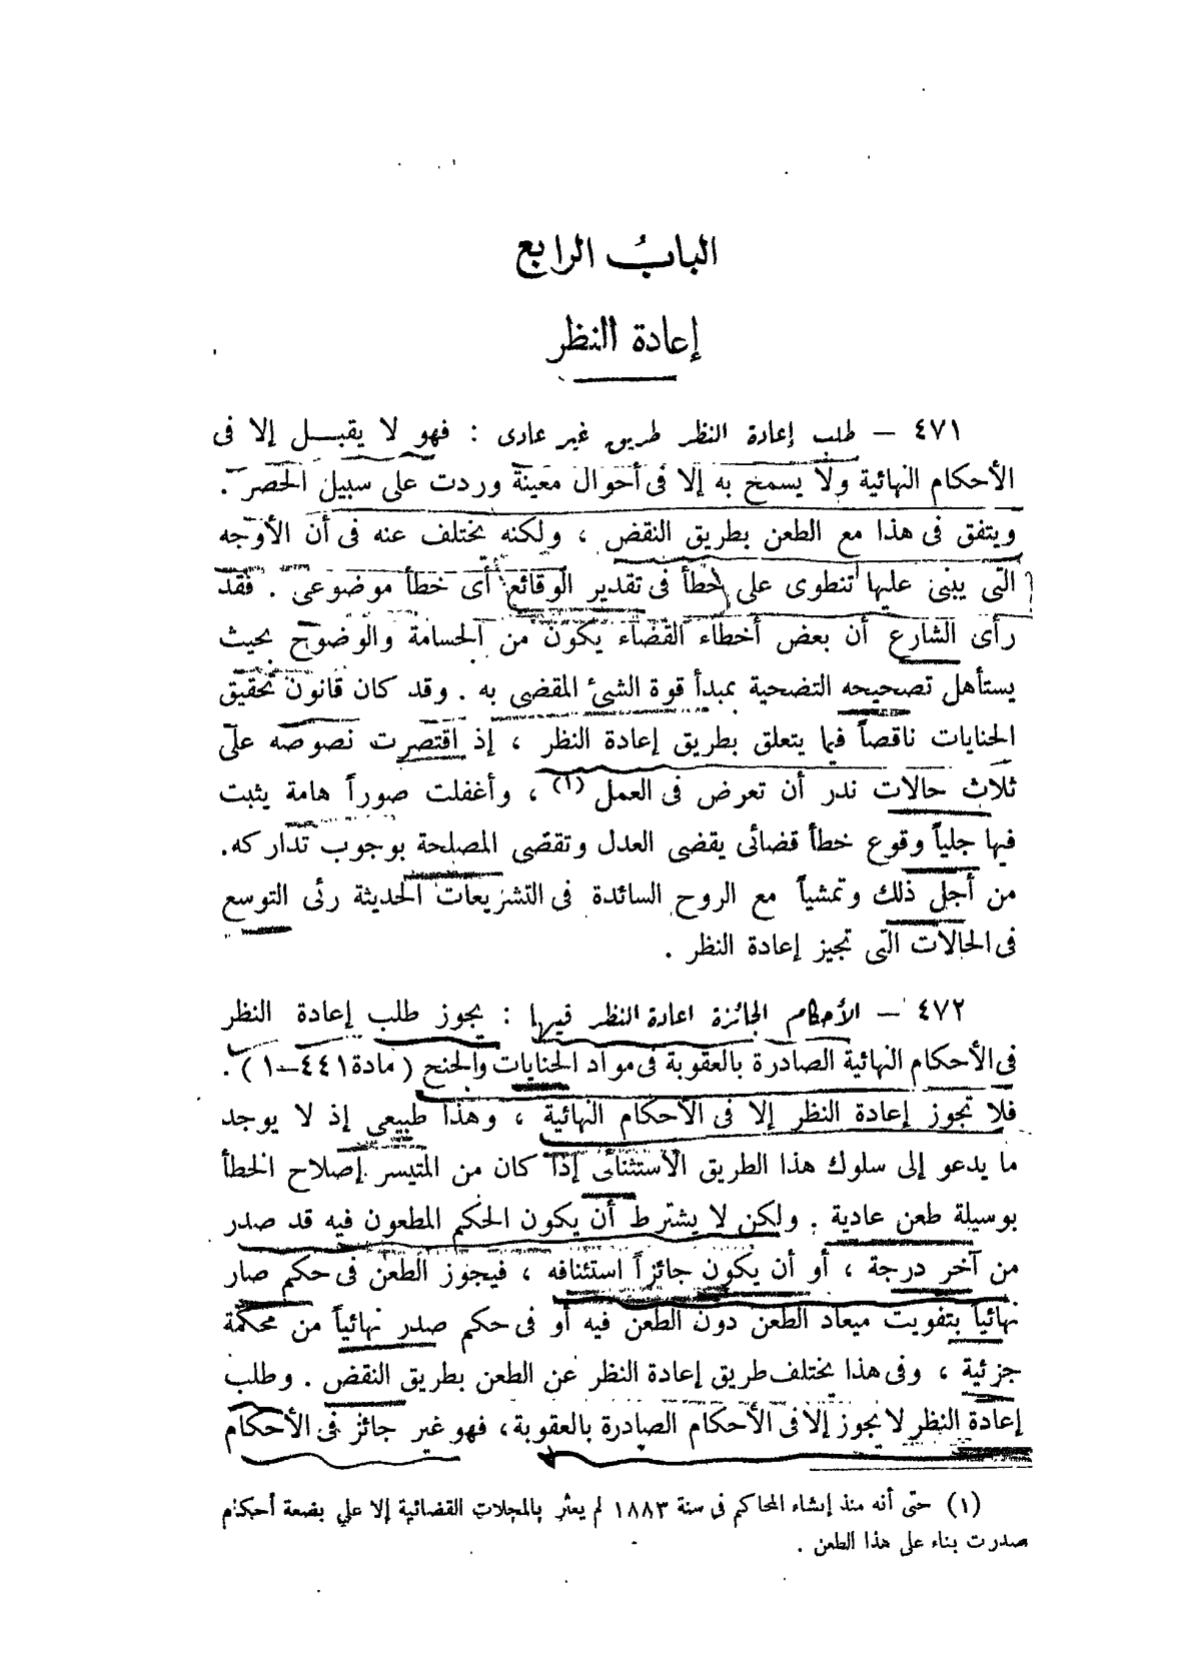 الباب الرابع
إعادة النظر
٤٧١ – طلب إعادة النظر طريق غير عادى : فهو لا يقبل إلا فى
الأحكام النهائية ولا يسمح به إلا فى أحوال معينة وردت على سبيل الحصر .
ويتفق فى هذا مع الطعن بطريق النقض ، ولكنه يختلف عنه فى أن الأوجه
التى يبنى عليها تنطوى على خطأ فى تقدير الوقائع أى خطأ موضوعى . فقد
رأى الشارع أن بعض أخطاء القضاء يكون من الجسامة والوضوح بحيث
يستأهل تصحيحه التضحية بمبدأ قوة الشئ المقضى به . وقد كان قانون تحقيق
الجنايات ناقصاً فيما يتعلق بطريق إعادة النظر ، إذ اقتصرت نصوصه على
ثلاث حالات ندر أن تعرض فى العمل (١) ، وأغفلت صوراً هامة يثبت
فيها جلياً وقوع خطأ قضائى يقضى العدل وتقضى المصلحة بوجوب تداركه.
من أجل ذلك وتمشياً مع الروح السائدة فى التشريعات الحديثة رئى التوسع
فى الحالات التى تجيز إعادة النظر .
٤٧٢ – الأحكام الجائزة اعادة النظر فيها : يجوز طلب إعادة النظر
فى الأحكام النهائية الصادرة بالعقوبة فى مواد الجنايات والجنح ( مادة ٤٤١–١ ) .
فلا تجوز إعادة النظر إلا فى الأحكام النهائية ، وهذا طبيعى إذ لا يوجد
ما يدعو إلى سلوك هذا الطريق الاستثنائى إذا كان من المتيسر إصلاح الخطأ
بوسيلة طعن عادية . ولكن لا يشترط أن يكون الحكم المطعون فيه قد صدر
من آخر درجة ، أو أن يكون جائزاً استئنافه ، فيجوز الطعن فى حكم صار
نهائياً بتفويت ميعاد الطعن دون الطعن فيه أو فى حكم صدر نهائياً من محكمة
جزئية ، وفى هذا يختلف طريق إعادة النظر عن الطعن بطريق النقض . وطلب
إعادة النظر لا يجوز إلا فى الأحكام الصادرة بالعقوبة، فهو غير جائز فى الأحكام
(١) حتى أنه منذ إنشاء المحاكم فى سنة ١٨٨٣ لم يعثر بالمجلات القضائية إلا على بضعة أحكام
صدرت بناء على هذا الطعن .